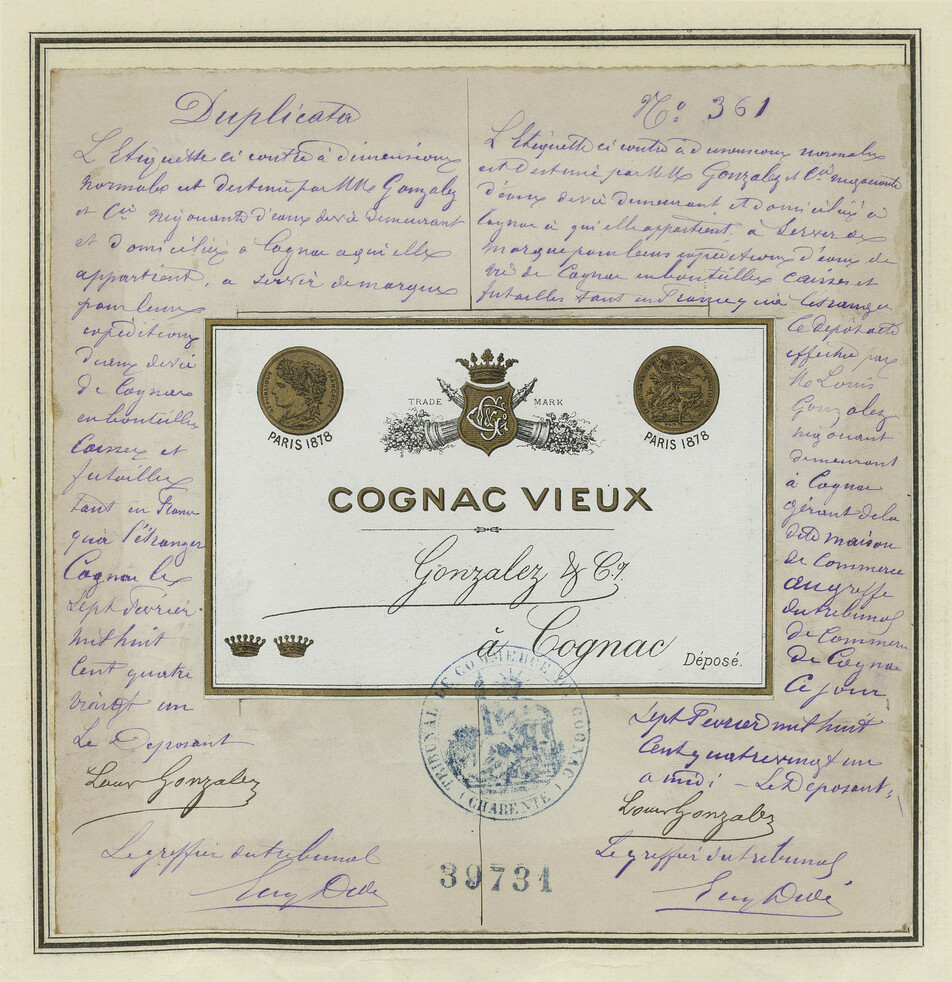 Duplicata
L'Etiquette ci contre à dimensions
normales est destinée par MM Gonzalez
et Cie négociants d'eaux de vie demeurant
et domiciliés à Cognac à qui elle
appartient, a servir de marque
pour leurs
expéditions
d'eaux de vie
de Cognac
en bouteilles
Caisses et
futailles
tant en France
qu'à l'étranger
Cognac le
Sept Février
mil huit
Cent quatre
vingt un
Le Deposant
Louis Gonzalez
Le greffier du tribunal
No 361
L'Etiquette ci contre à dimensions normales
est destinée par MM Gonzalez et Cie négociants
d'eaux de vie demeurant et domiciliés à
Cognac à qui elle appartient, à servir de
marque pour leurs expéditions d'eaux de
vie de Cognac en bouteilles caisses et
futailles tant en France qu'à l'étranger
Ce dépôt a été
effectué par
M Louis
Gonzalez
négociant
demeurant
à Cognac
gérant de la
dite maison
de Commerce
au greffe
du tribunal
de Commerce
de Cognac
Ce jour
Sept Février mil huit
Cent quatre vingt un
a midi - Le Deposant
Louis Gonzalez
Le greffier du tribunal
RÉPUBLIQUE FRANÇAISE
PARIS 1878
TRADE MARK
PARIS 1878
COGNAC VIEUX
Gonzalez & Cie
à Cognac
Déposé.
TRIBUNAL DE COMMERCE DE COGNAC
(CHARENTE)
39731